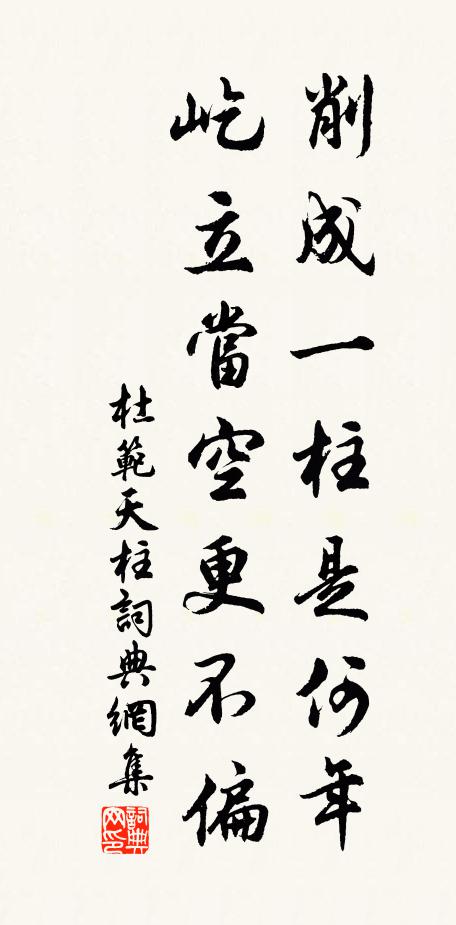 削成一柱是何年
屹立當空更不偏
杜範天柱詞典網集
詞典網印